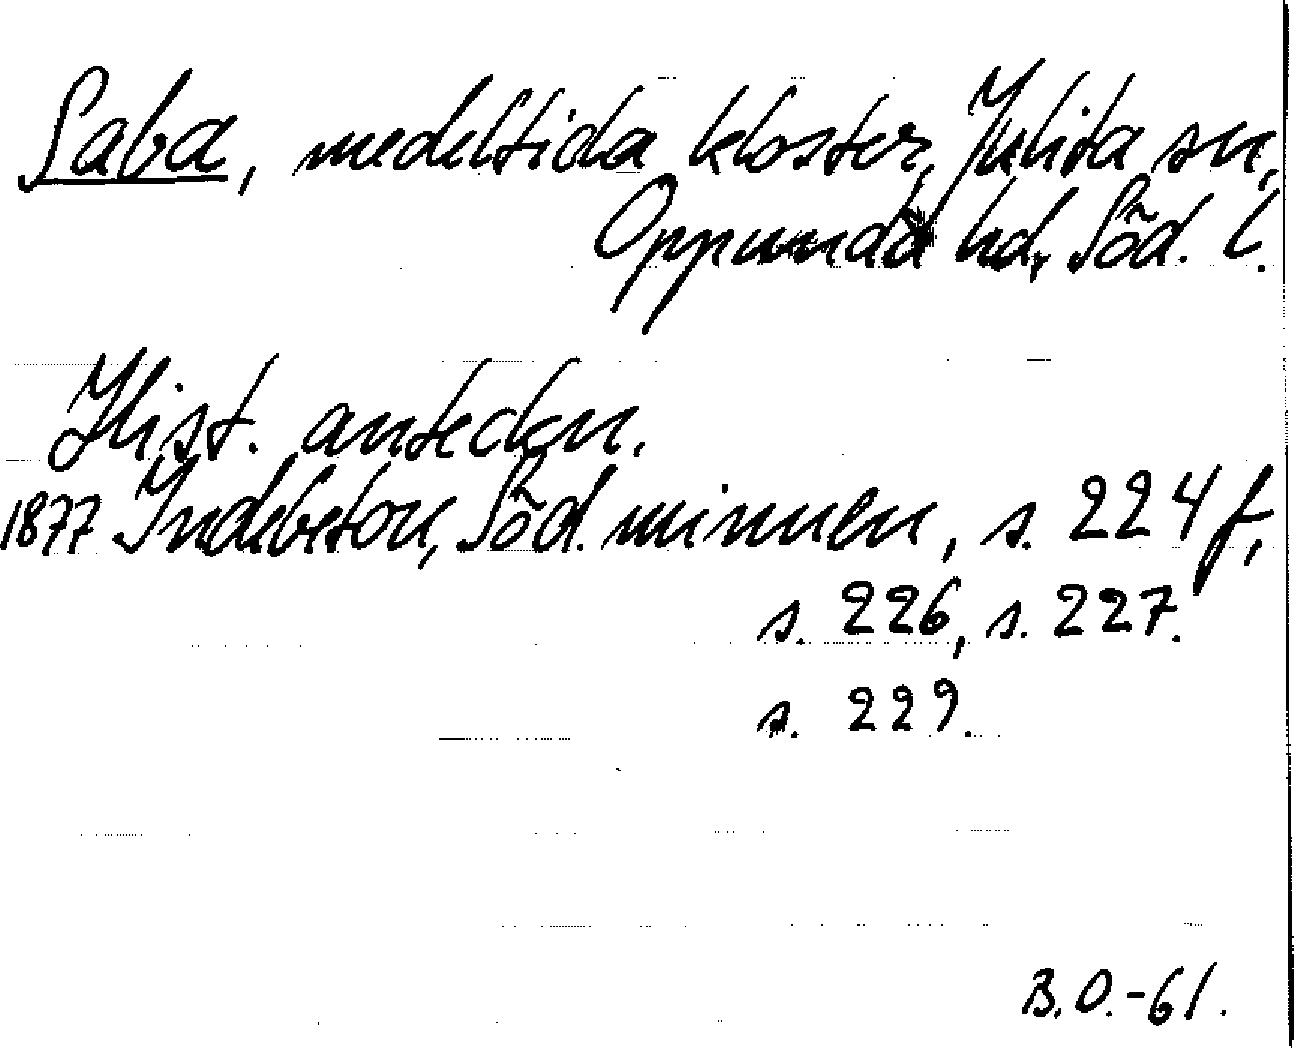 Saba, medeltida kloster, Julita sn,
Oppunda hd, Söd. l.
Hist. anteckn.
1877 Indebetou, Söd. minnen, s. 224 f,
s. 226, s. 227.
s. 229.
B.O.-61.